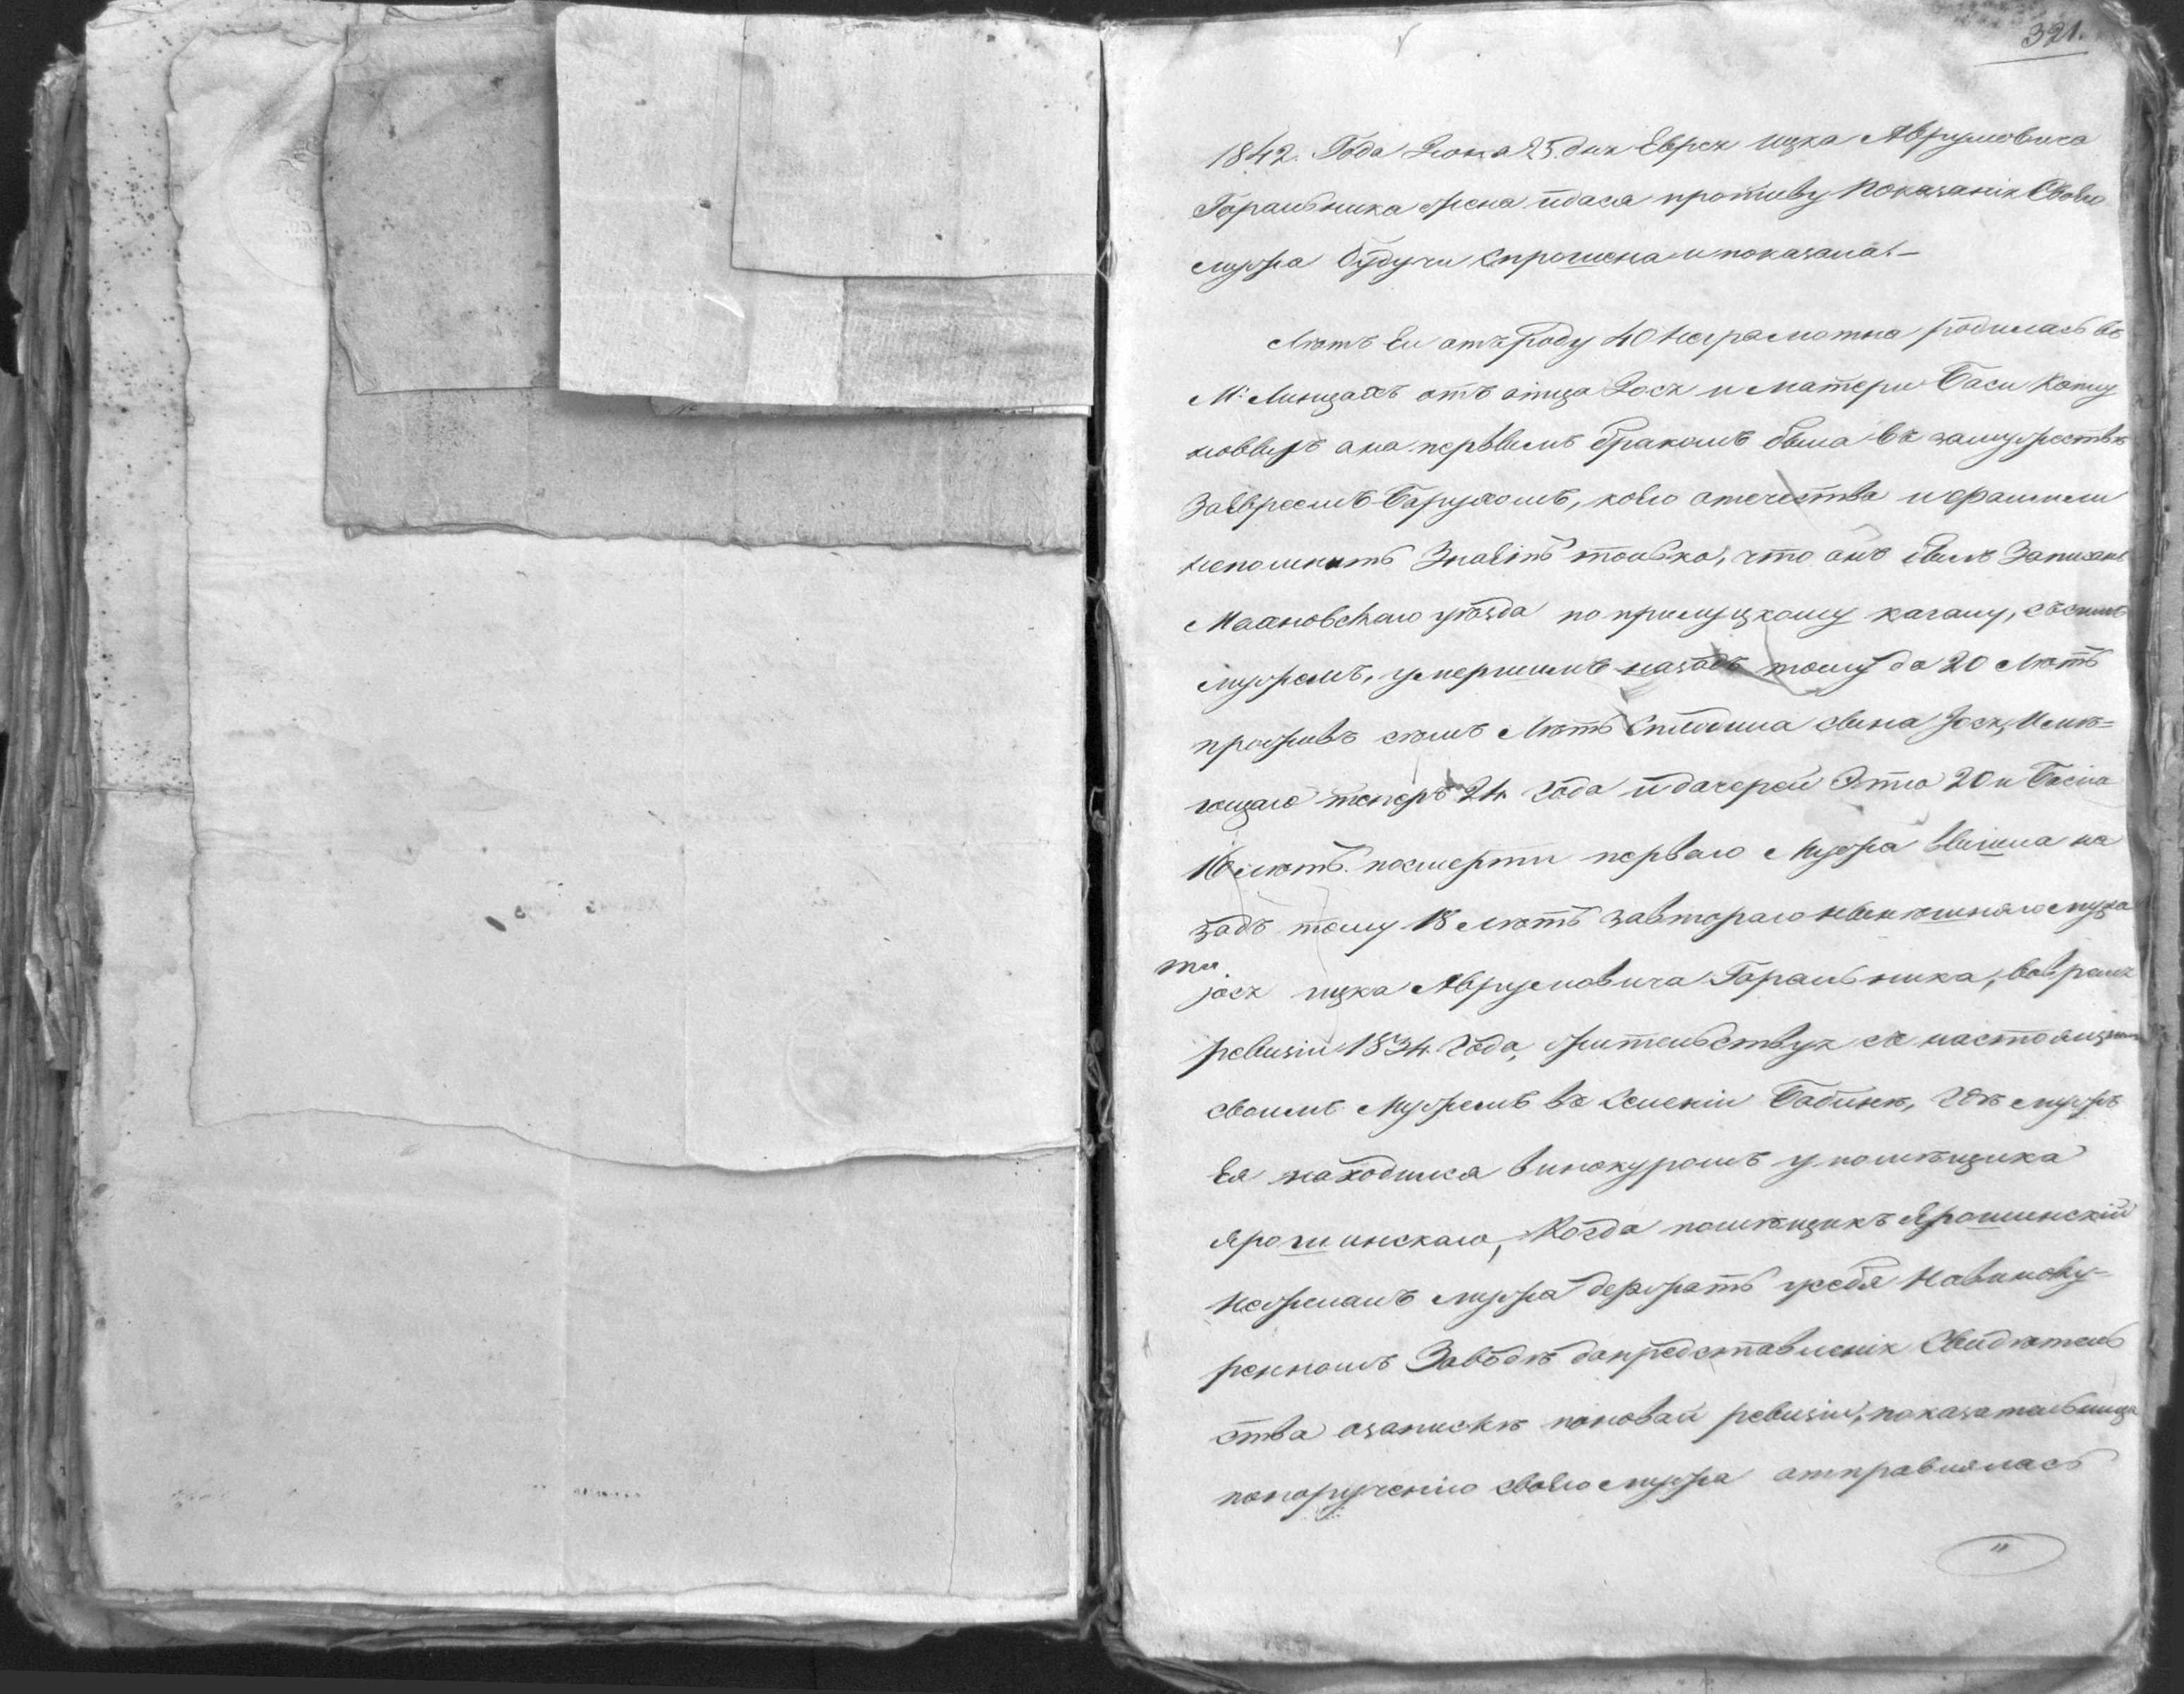 321.
1842. Года Іюня 25. дня Еврея ицка Аврумовича
Горальника жена идася противу показанія Своего
мужа будучи спрошена и показала:—
Лѣтъ Ей отъ роду 40 неграмотна родилась въ
М: Линцахъ отъ отца Іося и матери Баси
она первымъ бракомъ была въ замужествѣ
за Евреемъ Барухомъ, коего отечества и фамиліи
непомнитъ Знаетъ только, что онъ былъ Записанъ
Махновскаго уѣзда по прилуцкому кагалу, съ симъ
мужемъ, умершимъ назадъ тому до 20 Лѣтъ
проживъ семь Лѣтъ Сплодила сына Іося, Имѣ=
ющаго теперь 24. года и дочерей Этю 20 и Басю
16 лѣтъ. посмерти перваго Мужа вышла на
задъ тому 18 Лѣтъ завтораго нынѣшняго мужа
ицка Аврумовича Горальника, вовремя
ревизіи 1834. Года, жительствуя съ настоящимъ
своимъ Мужемъ въ Селеніи Бабинѣ, Гдѣ мужъ
Ея находился винокуромъ у помѣщика
Ярошинскаго, Когда помѣщикъ Ярошинскій
нежелалъ мужа держать усебя Навиноку=
ренномъ Заводѣ допредставленія Свидѣтель
ства озапискѣ поновой ревизіи, показательница
попорученію своего мужа отправлялась